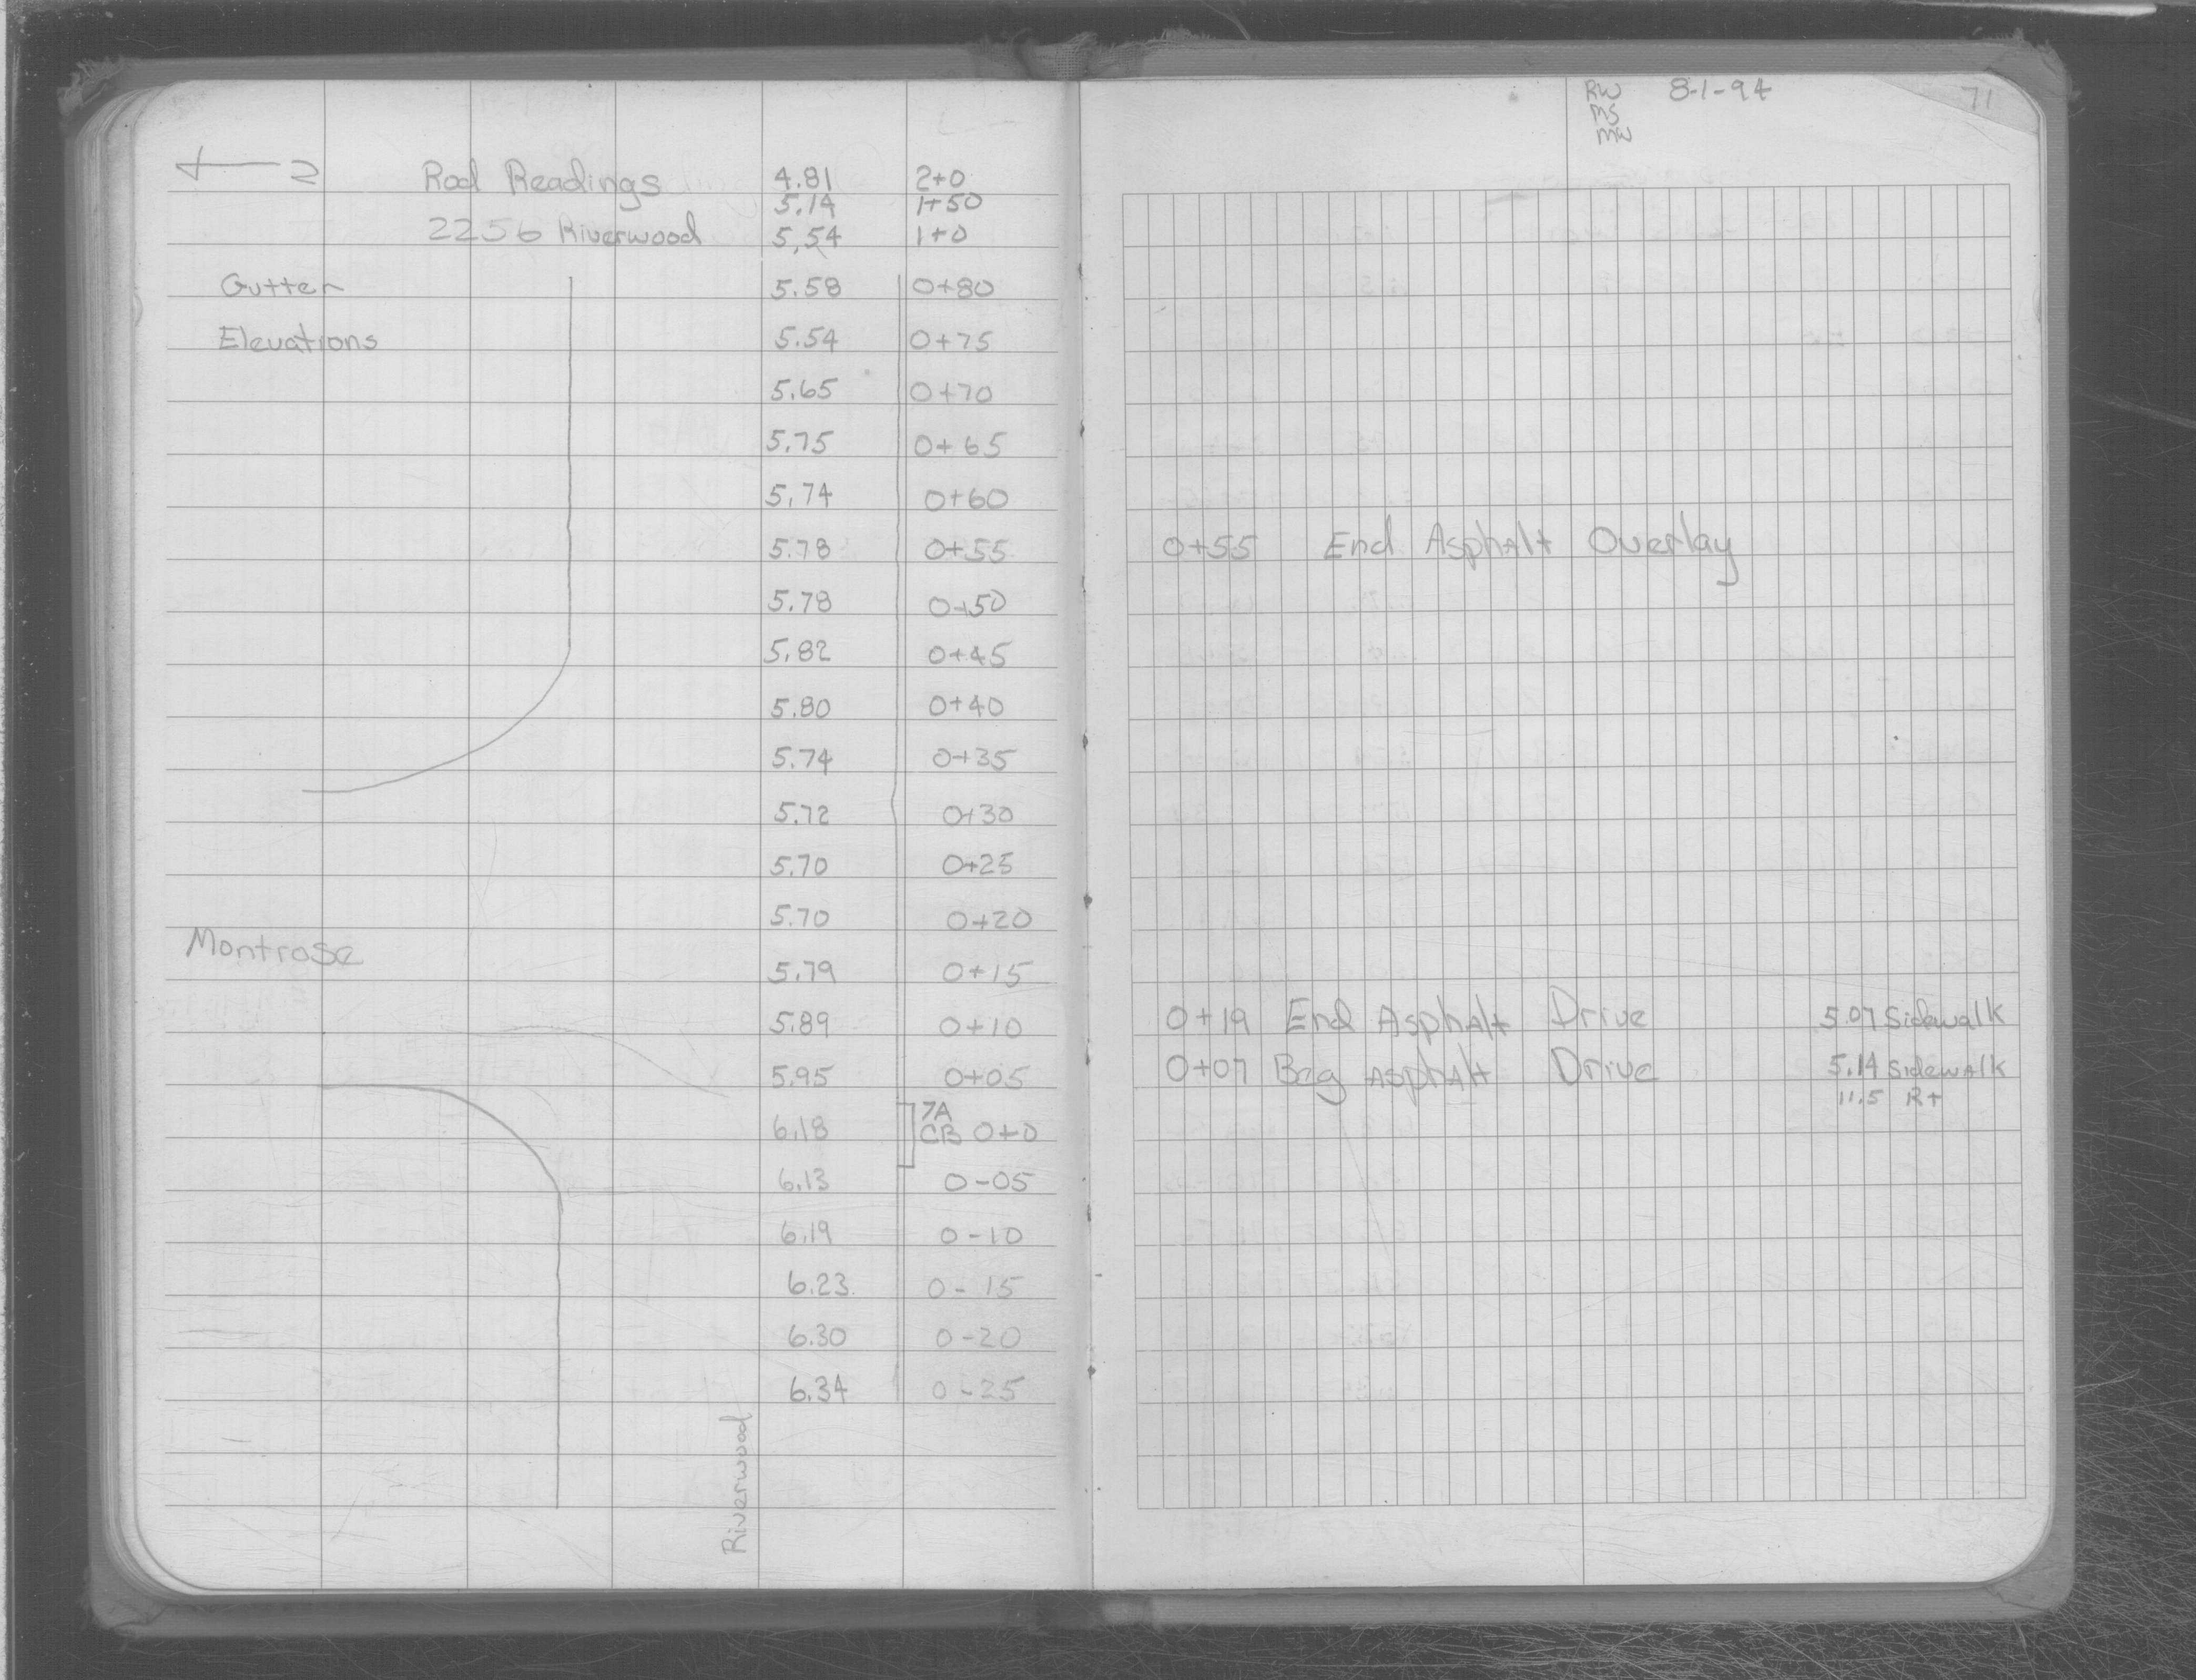 N Rod Readings 4.81 2+0
5.14 1+50
2256 Riverwood 5.54 1+0
Gutter 5.58 0+80
Elevations 5.54 0+75
5.65 0+70
5.75 0+65
5.74 0+60
5.78 0+55
5.78 0+50
5.82 0+45
5.80 0+40
5.74 0+35
5.72 0+30
5.70 0+25
5.70 0+20
Montrose
5.79 0+15
5.89 0+10
5.95 0+05
7A
6.18 CB 0+0
6.13 0-05
6.19 0-10
6.23 0-15
6.30 0-20
6.34 0-25
Riverwood
RW 8-1-94 71
MS
MW
0+55 End Asphalt Overlay
0+19 End Asphalt Drive 5.07 Sidewalk
0+07 Beg Asphalt Drive 5.14 Sidewalk
11.5 Rt